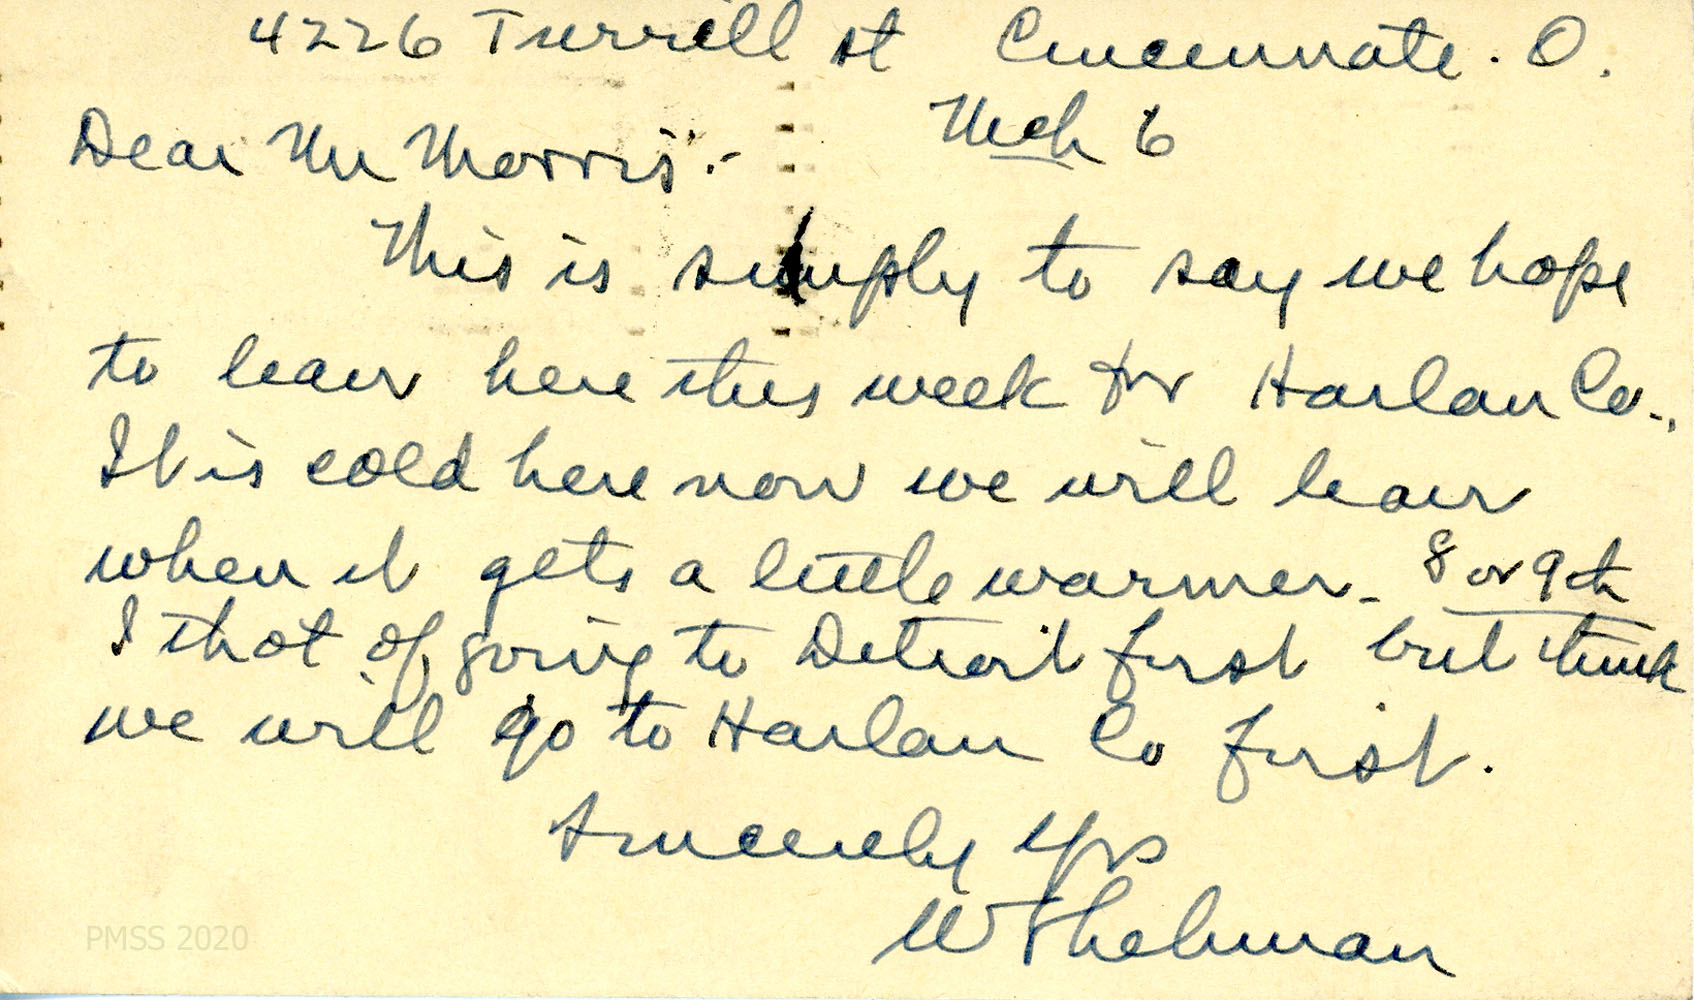 4226 Turrill st Cincinnate. O.
Mch 6
Dear Mr Morris:-
This is simply to say we hope
to leave here this week for Harlan Co.,
It is cold here now we will leave
when it gets a little warmer - 8 or 9th
I thot of going to Detroit first but think
we will go to Harlan Co first.
Sincerely Yrs
PMSS 2020